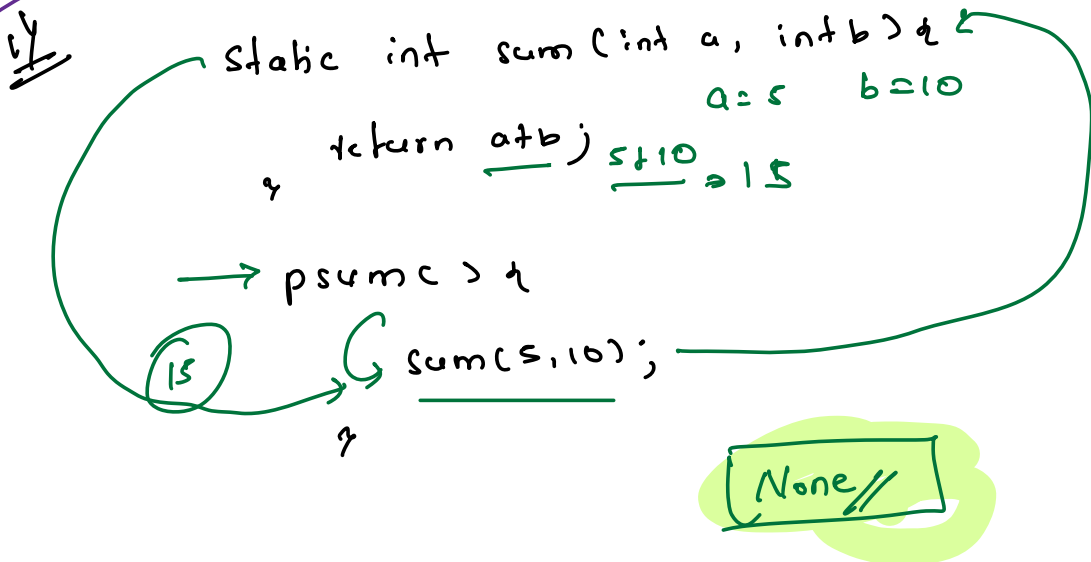 static int sum(int a, int b) {
a = 5 b = 10
return a+b; 5+10 => 15
}
→ psvm( ) {
15
sum(5,10);
}
None//